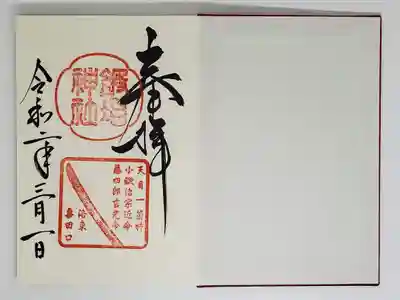 奉拝
鍛冶
神社
天目一箇神
小鍛冶宗近命
藤四郎吉光命
洛東
粟田口
令和二年三月一日